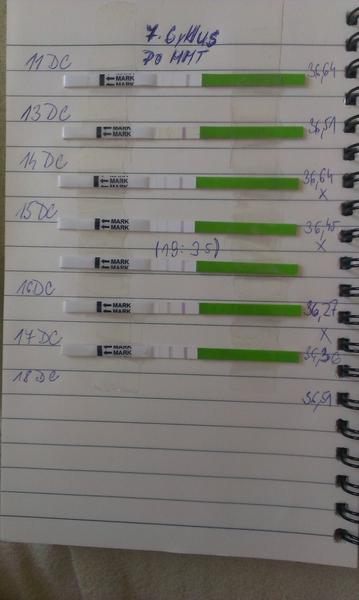 7. Cyklus
Po MMT
11 DC
← MARK
← MARK
36,64
13 DC
← MARK
← MARK
36,51
14 DC
← MARK
← MARK
36,64
X
15 DC
← MARK
← MARK
36,45
X
(19:35)
← MARK
← MARK
16 DC
← MARK
← MARK
36,27
X
17 DC
← MARK
← MARK
36,36
18 DC
36,51